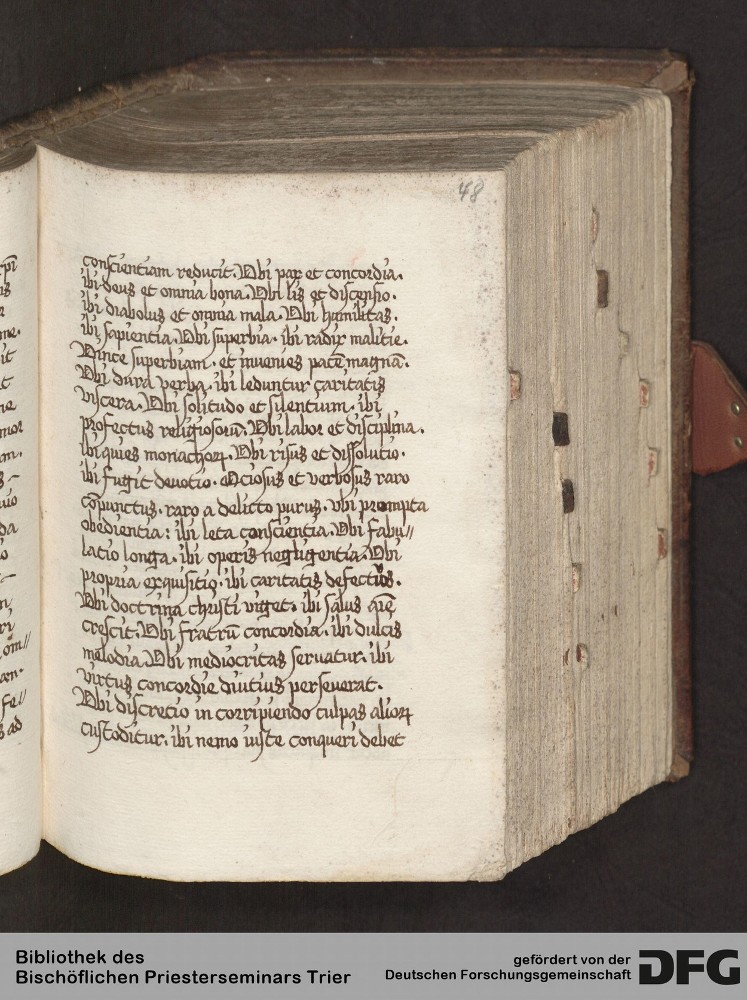 48
conscientiam reducit. Vbi pax et concordia.
ibi deus et omnia bona. Vbi lis et discensio.
ibi diabolus et omnia mala. Vbi humilitas.
ibi sapientia. Vbi superbia. ibi radix malitie.
Vince superbiam. et inuenies pacē magnā.
Vbi dura verba. ibi leduntur caritatis
viscera. Vbi solitudo et silentium. ibi
profectus religiosorū. Vbi labor et disciplina.
ibi quies monachoꝝ. Vbi risus et dissolutio.
ibi fugit deuotio. Ociosus et verbosus raro
cōpunctus. raro a delicto purus. vbi prompta
obedientia: ibi leta conscientia. Vbi fabu//
latio longa. ibi operis negligentia. Vbi
propria exquisitio. ibi caritatis defectus.
Vbi doctrina christi viget. ibi salus aīe
crescit. Vbi fratrū concordia. ibi dulcis
melodia. Vbi mediocritas seruatur. ibi
virtus concordie diutius perseuerat.
Vbi discretio in corripiendo culpas alioꝝ
custoditur. ibi nemo iuste conqueri debet
Bibliothek des
Bischöflichen Priesterseminars Trier
gefördert von der
Deutschen Forschungsgemeinschaft
DFG